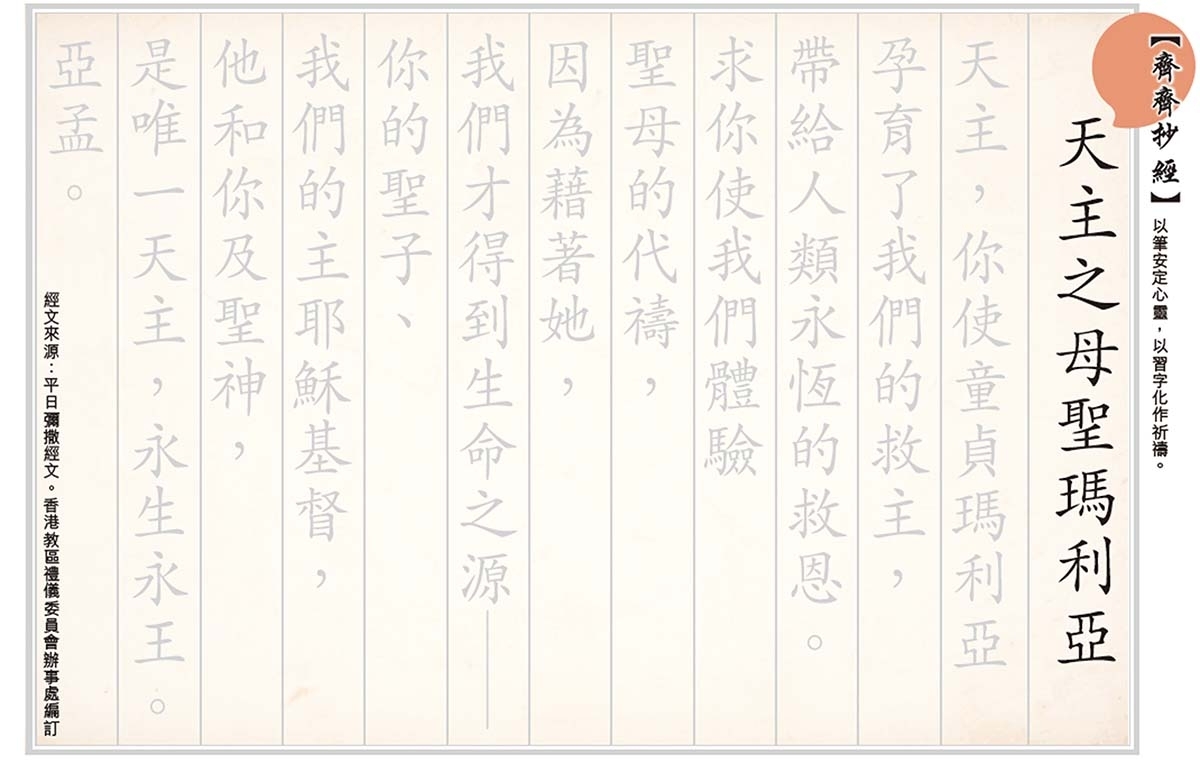 【齊齊抄經】以筆安定心靈，以習字化作祈禱。
天主之母聖瑪利亞
天主，你使童貞瑪利亞
孕育了我們的救主，
帶給人類永恆的救恩。
求你使我們體驗
聖母的代禱，
因為藉著她，
我們才得到生命之源——
你的聖子、
我們的主耶穌基督，
他和你及聖神，
是唯一天主，永生永王。
亞孟。
經文來源：平日彌撒經文。香港教區禮儀委員會辦事處編訂